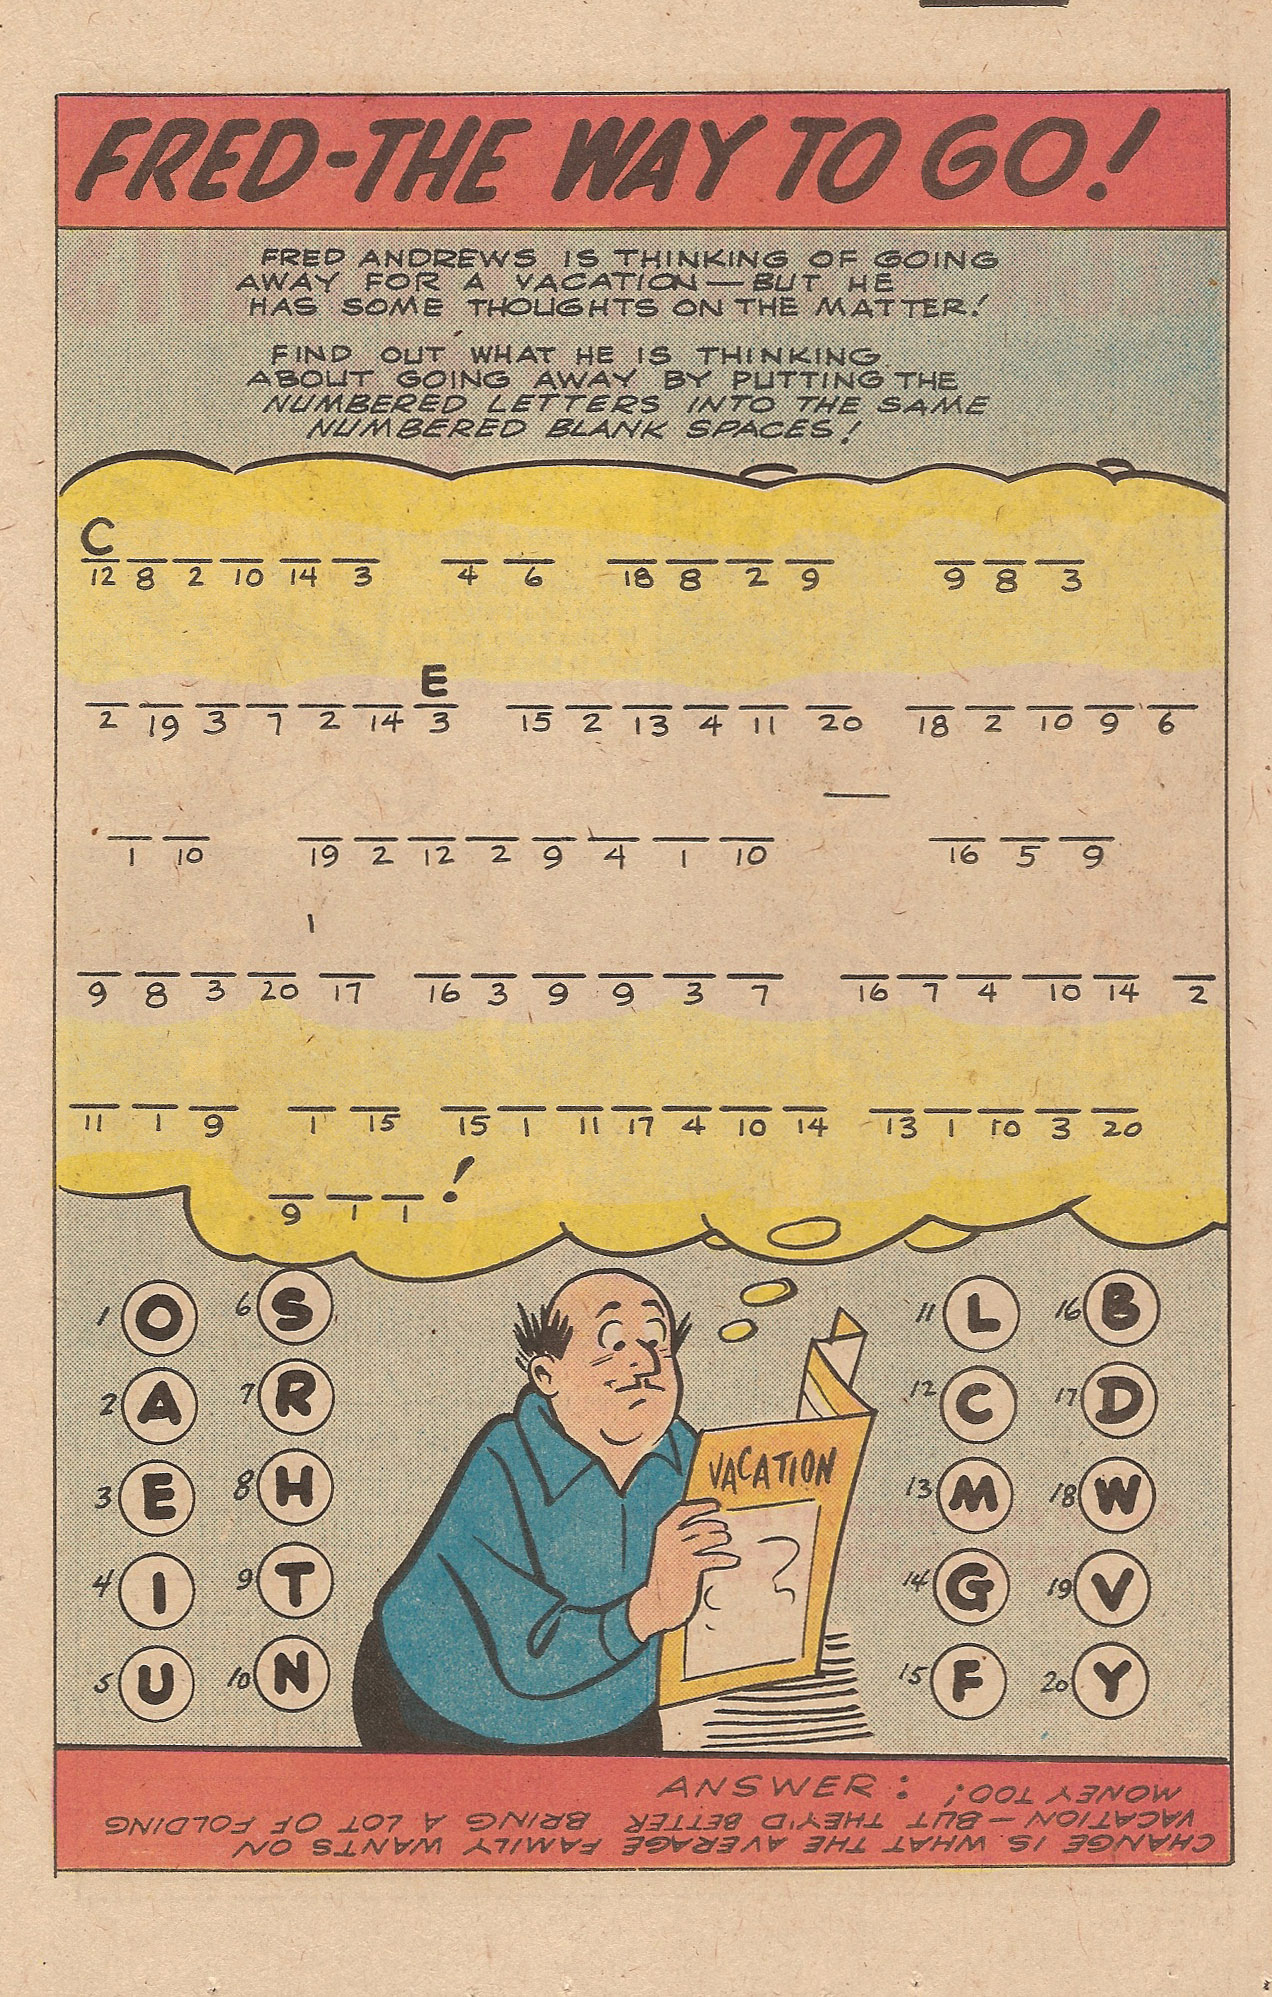 FRED-THE WAY TO GO!
FRED ANDREWS IS THINKING OF GOING
AWAY FOR A VACATION—BUT HE
HAS SOME THOUGHTS ON THE MATTER!
FIND OUT WHAT HE IS THINKING
ABOUT GOING AWAY BY PUTTING THE
NUMBERED LETTERS INTO THE SAME
NUMBERED BLANK SPACES!
C
12 8 2 10 14 3 4 6 18 8 2 9 9 8 3
E
2 19 3 7 2 14 3 15 2 13 4 11 20 18 2 10 9 6
1 10 19 2 12 2 9 4 1 10 — 16 5 9
9 8 3 20 ' 17 16 3 9 9 3 7 16 7 4 10 14 2
11 1 9 1 15 15 1 11 17 4 10 14 13 1 10 3 20
9 1 1 !
1 O 6 S 11 L 16 B
2 A 7 R 12 C 17 D
3 E 8 H 13 M 18 W
4 I 9 T 14 G 19 V
5 U 10 N 15 F 20 Y
VACATION
ANSWER:
CHANGE IS WHAT THE AVERAGE FAMILY WANTS ON
VACATION—BUT THEY'D BETTER BRING A LOT OF FOLDING
MONEY TOO!